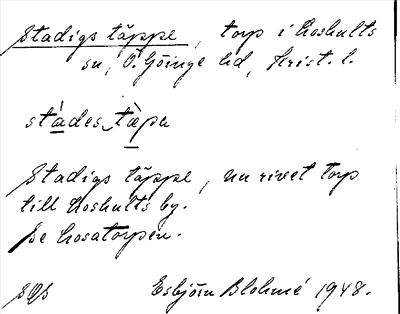 Stadigs täppe, torp i Loshults
sn, Ö. Göinge hd, Krist. l.
stádes tæ̀pa
Stadigs täppe, nu rivet torp
till Loshults by.
Se Losatorpen.
Esbjörn Blohmé 1948.